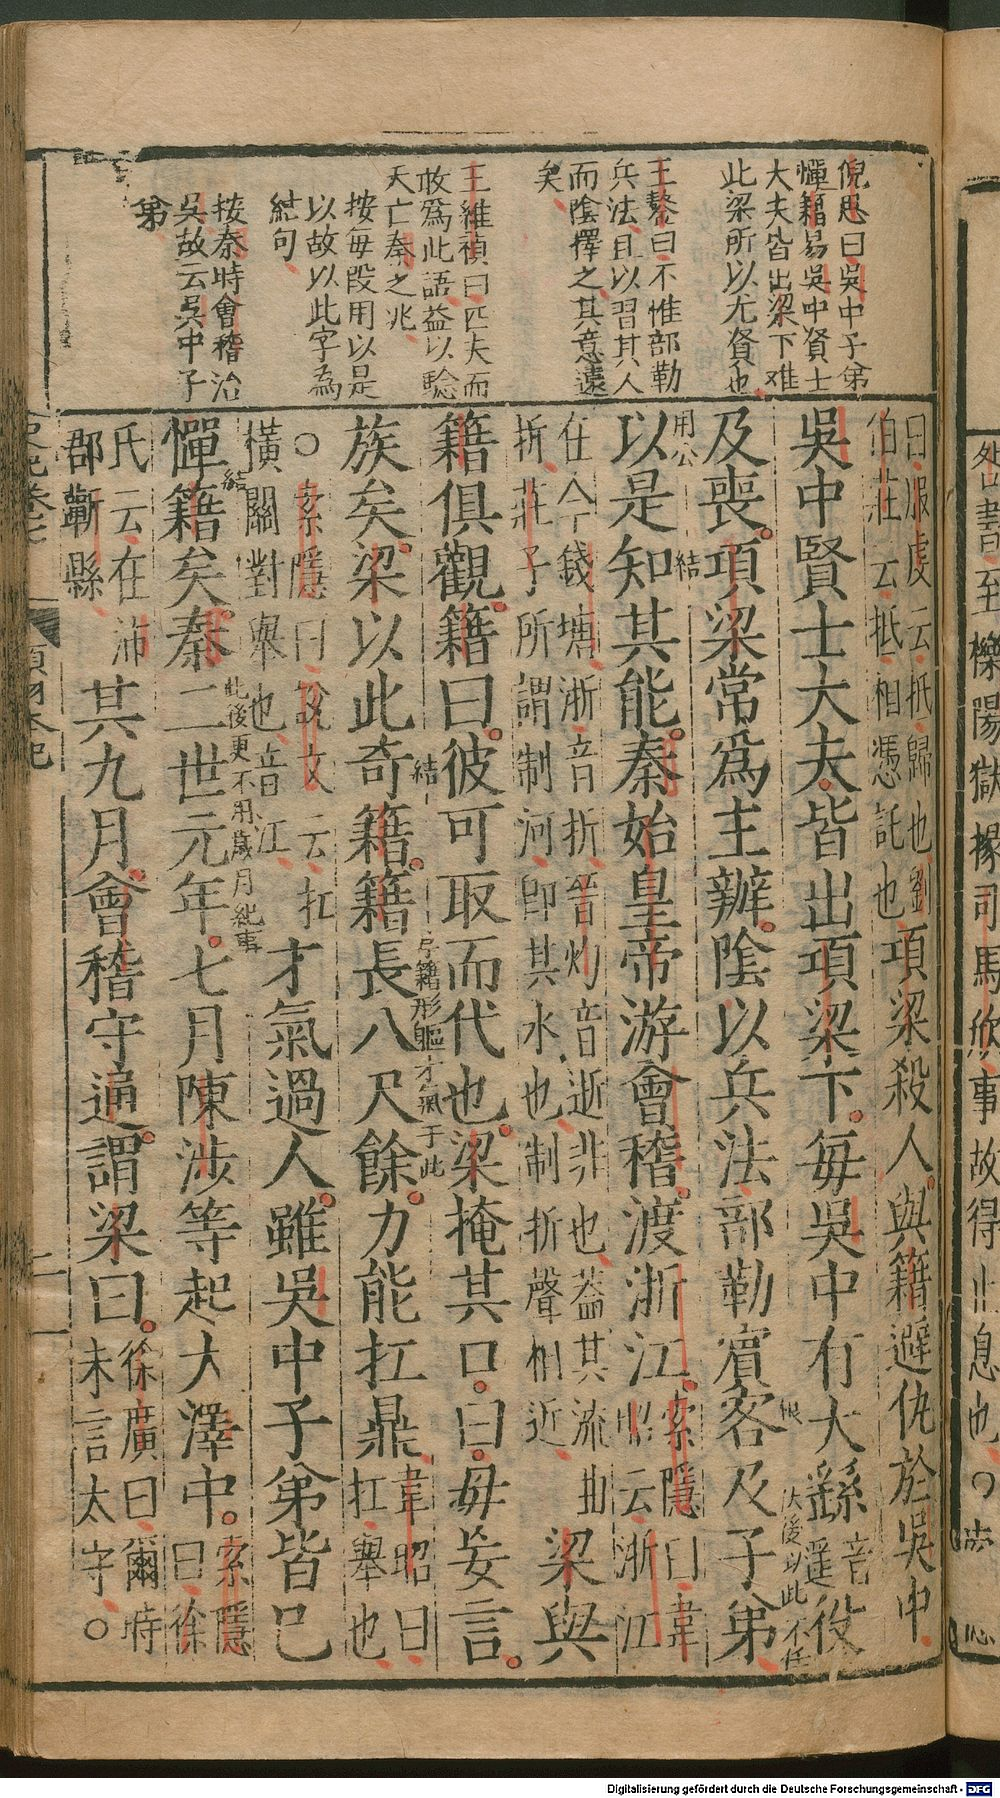 倪思曰吳中子弟
憚籍易吳中賢士
大夫皆出梁下难
此梁所以尤賢也
王鏊曰不惟部勒
兵法且以習其人
而陰擇之其意遠
矣
王維禎曰匹夫而
敢爲此語益以驗
天亡秦之兆
按每段用以是
以故以此字為
結句
按秦時會稽治
吳故云吳中子
弟
曰服虔云抵歸也劉
伯莊云抵相憑託也
項梁殺人與籍避仇於吳中
吳中賢士大夫皆出項梁下每吳中有大繇
音遥
役
及喪項梁常爲主辦陰以兵法部勒賓客及子弟
大後以此不任
用公
以是知其能秦始皇帝游會稽渡浙江
結
索隱曰韋
昭云浙江
在今錢塘浙音折晉灼音逝非也葢其流曲
折莊子所謂制河即其水也制折聲相近
梁與
籍俱觀籍曰彼可取而代也梁掩其口曰毋妄言
結
族矣梁以此奇籍籍長八尺餘力能扛鼎
韋昭曰
扛舉也
籍形軀才氣于此
○索隱曰說文云扛
橫關對舉也音江
才氣過人雖吳中子弟皆已
結
此後更不用歲月紀事
憚籍矣秦二世元年七月陳涉等起大澤中
索隱
曰徐
氏云在沛
郡蘄縣
其九月會稽守通謂梁曰
徐廣曰爾時
未言太守○
史記卷七
項羽本紀
二
至櫟陽獄掾司馬欣事故得止息也○
Digitalisierung gefördert durch die Deutsche Forschungsgemeinschaft - DFG